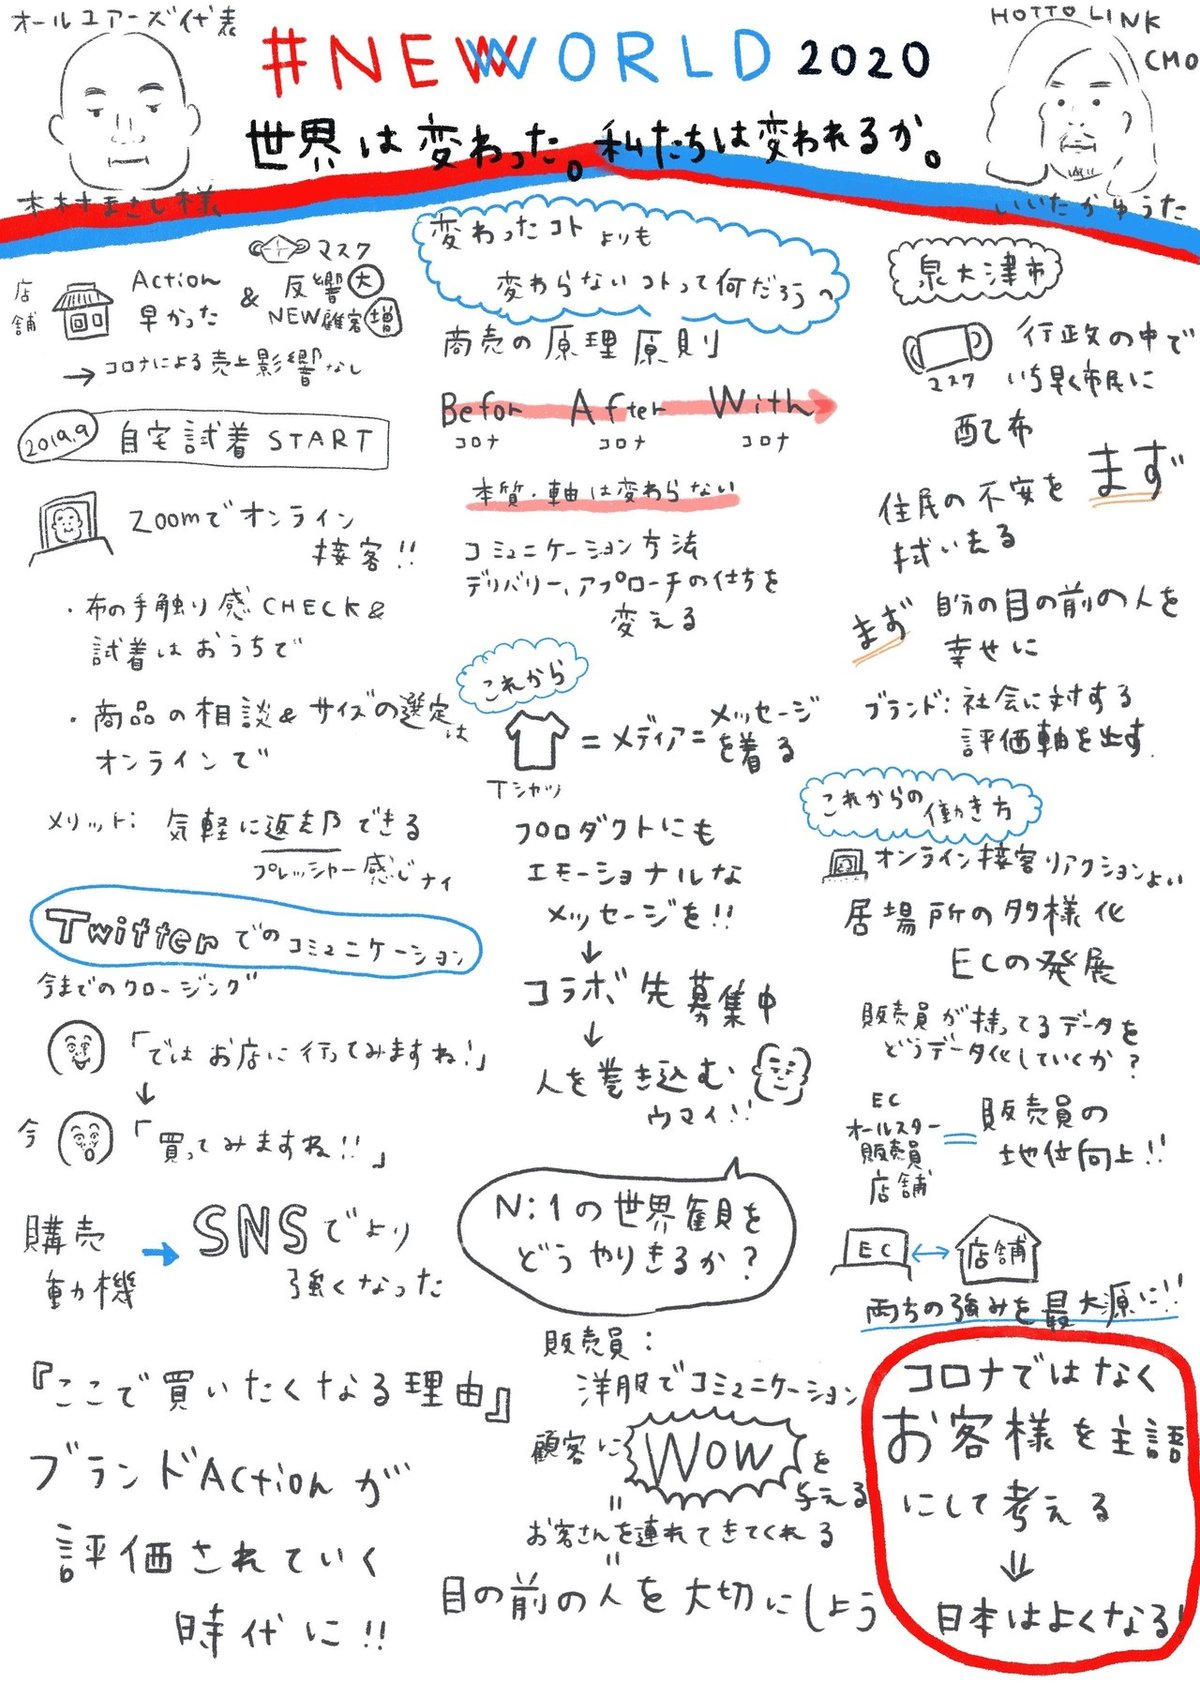 オールユアーズ代表
木村まさし様
#NEWWORLD 2020
世界は変わった。私たちは変われるか。
HOTTO LINK
CMO
いいたかゆうた
店舗
Action
早かった
&
マスク
反響大
NEW顧客増
→コロナによる売上影響なし
2019.9 自宅試着 START
Zoomでオンライン
接客!!
・布の手触り感CHECK&
試着はおうちで
・商品の相談&サイズの選定は
オンラインで
メリット:気軽に返却できる
プレッシャー感じナイ
Twitterでのコミュニケーション
今までのクロージング
「ではお店に行ってみますね!」
↓
今
「買ってみますね!!」
購売
動機
→
SNSでより
強くなった
『ここで買いたくなる理由』
ブランドActionが
評価されていく
時代に!!
変わったコトよりも
変わらないコトって何だろう
商売の原理原則
Befor After With
コロナ コロナ コロナ
本質・軸は変わらない
コミュニケーション方法
デリバリー、アプローチの仕方を
変える
これから
Tシャツ
=メディア=メッセージ
を着る
プロダクトにも
エモーショナルな
メッセージを!!
↓
コラボ先募集中
↓
人を巻き込む
ウマイ!!
N:1の世界観を
どうやりきるか?
販売員:
洋服でコミュニケーション
顧客に
Wow
を
与える
"
お客さんを連れてきてくれる
"
目の前の人を大切にしよう
泉大津市
マスク
行政の中で
いち早く市民に
配布
まず
住民の不安を
拭い去る
まず
自分の目の前の人を
幸せに
ブランド:社会に対する
評価軸を出す.
これからの
働き方
オンライン接客リアクションよい
居場所の多様化
ECの発展
販売員が持ってるデータを
どうデータ化していくか?
EC
オールスター
販売員
店舗
=
販売員の
地位向上!!
EC↔店舗
両方の強みを最大源に!!
コロナではなく
お客様を主語
にして考える
⇓
日本はよくなる!